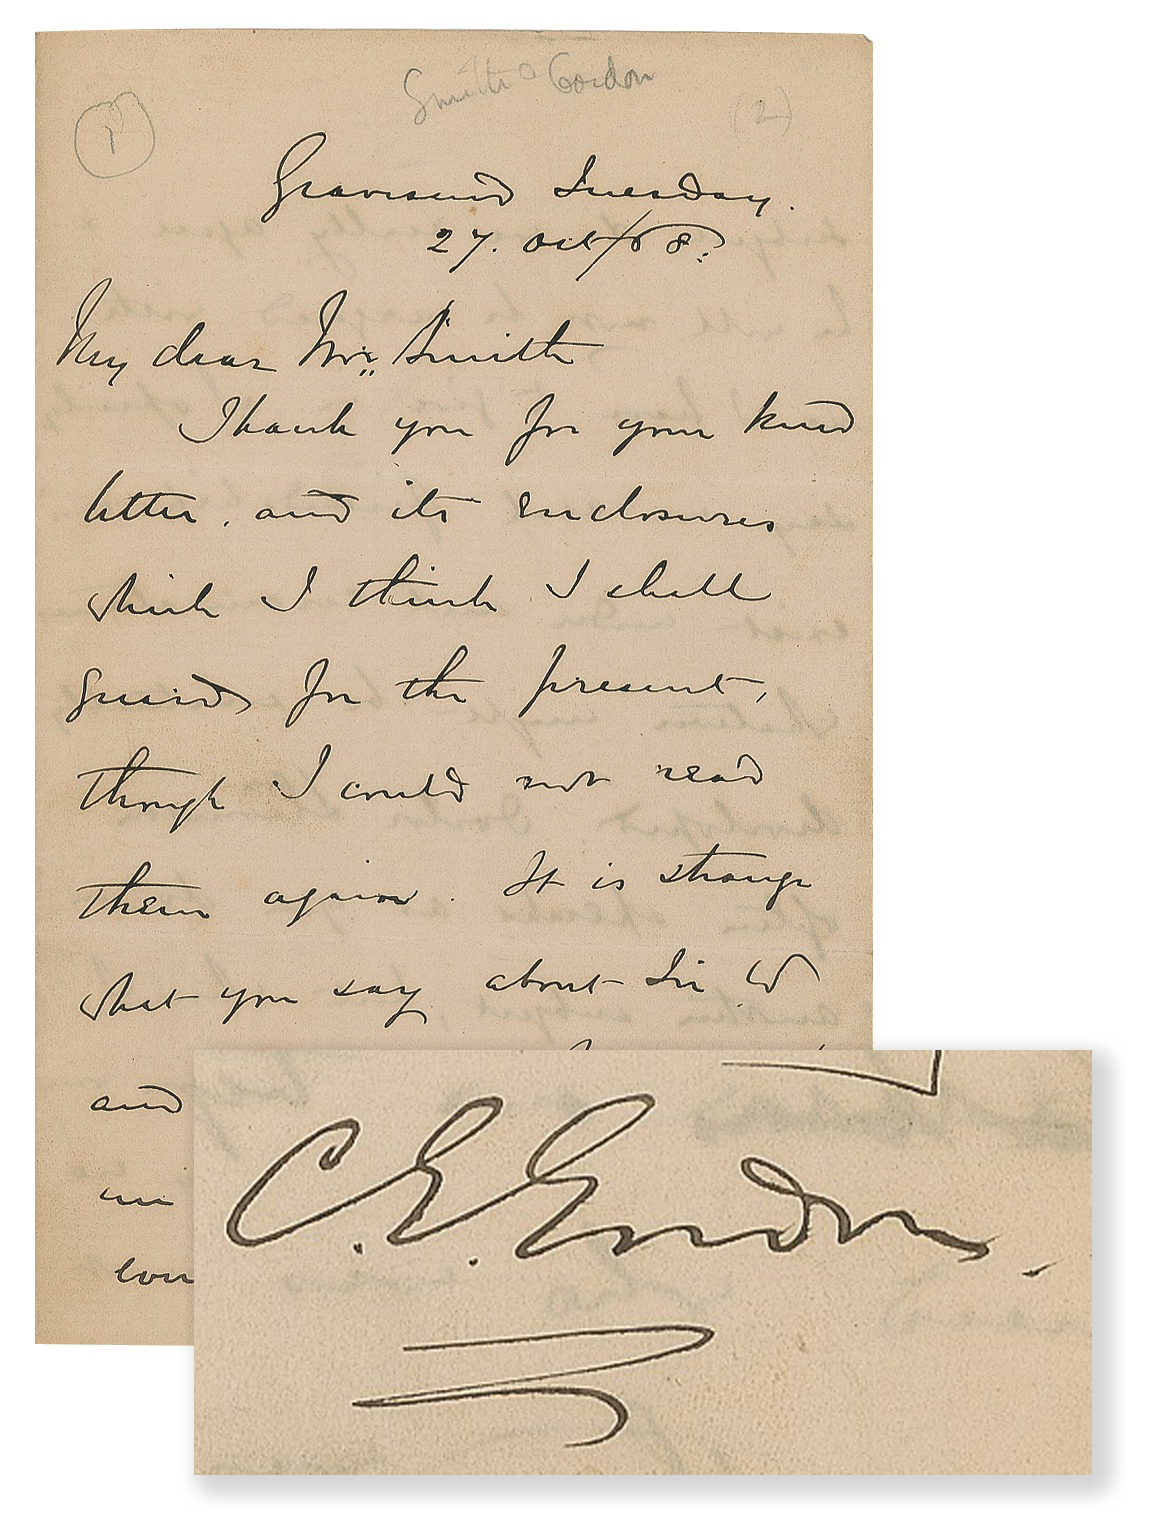 Smith Gordon
1
(2)
Gravesend Tuesday.
27. Oct/68.
My dear Mrs. Smith
Thank you for your kind
letter, and its enclosures
which I think I shall
guard for the present,
though I could not read
them again. It is strange
what you say about Sir W
and
con
C. E. Gordon.